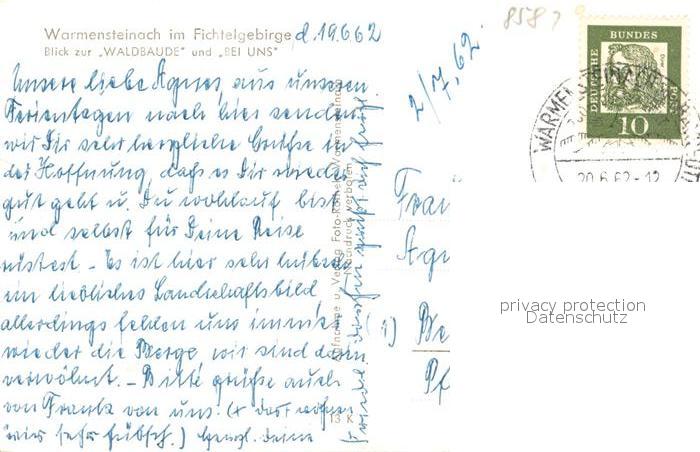 Warmensteinach im Fichtelgebirge, d. 19.6.62
Blick zur „WALDBAUDE" und „BEI UNS"
Unsere liebe Agnes, aus unseren
Ferientagen nach hier senden
wir Dir sehr herzliche Grüße in
der Hoffnung, daß es Dir wieder
gut geht u. Du wohlauf bist
und selbst für Deine Reise
rüstest. - Es ist hier sehr hübsch
ein liebliches Landschaftsbild,
allerdings fehlen uns immer
wieder die Berge, wir sind darin
verwöhnt. - Bitte grüße auch
von Frank von uns. (+ dort wohnen
wir sehr hübsch.) Herzl. Deine
13 K
Aufnahme u. Verlag Foto- Warmensteinach
Nachdruck verboten
2/7. 62.
8587
Frau
Agn
(1) Be
Pf
DEUTSCHE BUNDESPOST
Dürer
10
WARMENSTEINACH
20.6.62-12
privacy protection
Datenschutz